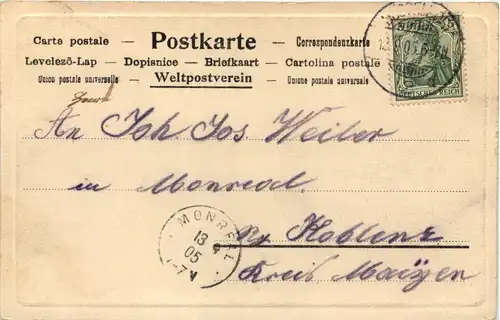 Carte postale – Postkarte – Correspondenzkarte
Levelezö-Lap – Dopisnice – Briefkaart – Cartolina postale
Union postale universelle – Weltpostverein – Unione postale universale
DEUTSCHES REICH
An Joh Jos Weiler
in Monreal.
MONREAL
13
05
Bz Koblenz
Kreis Mayen